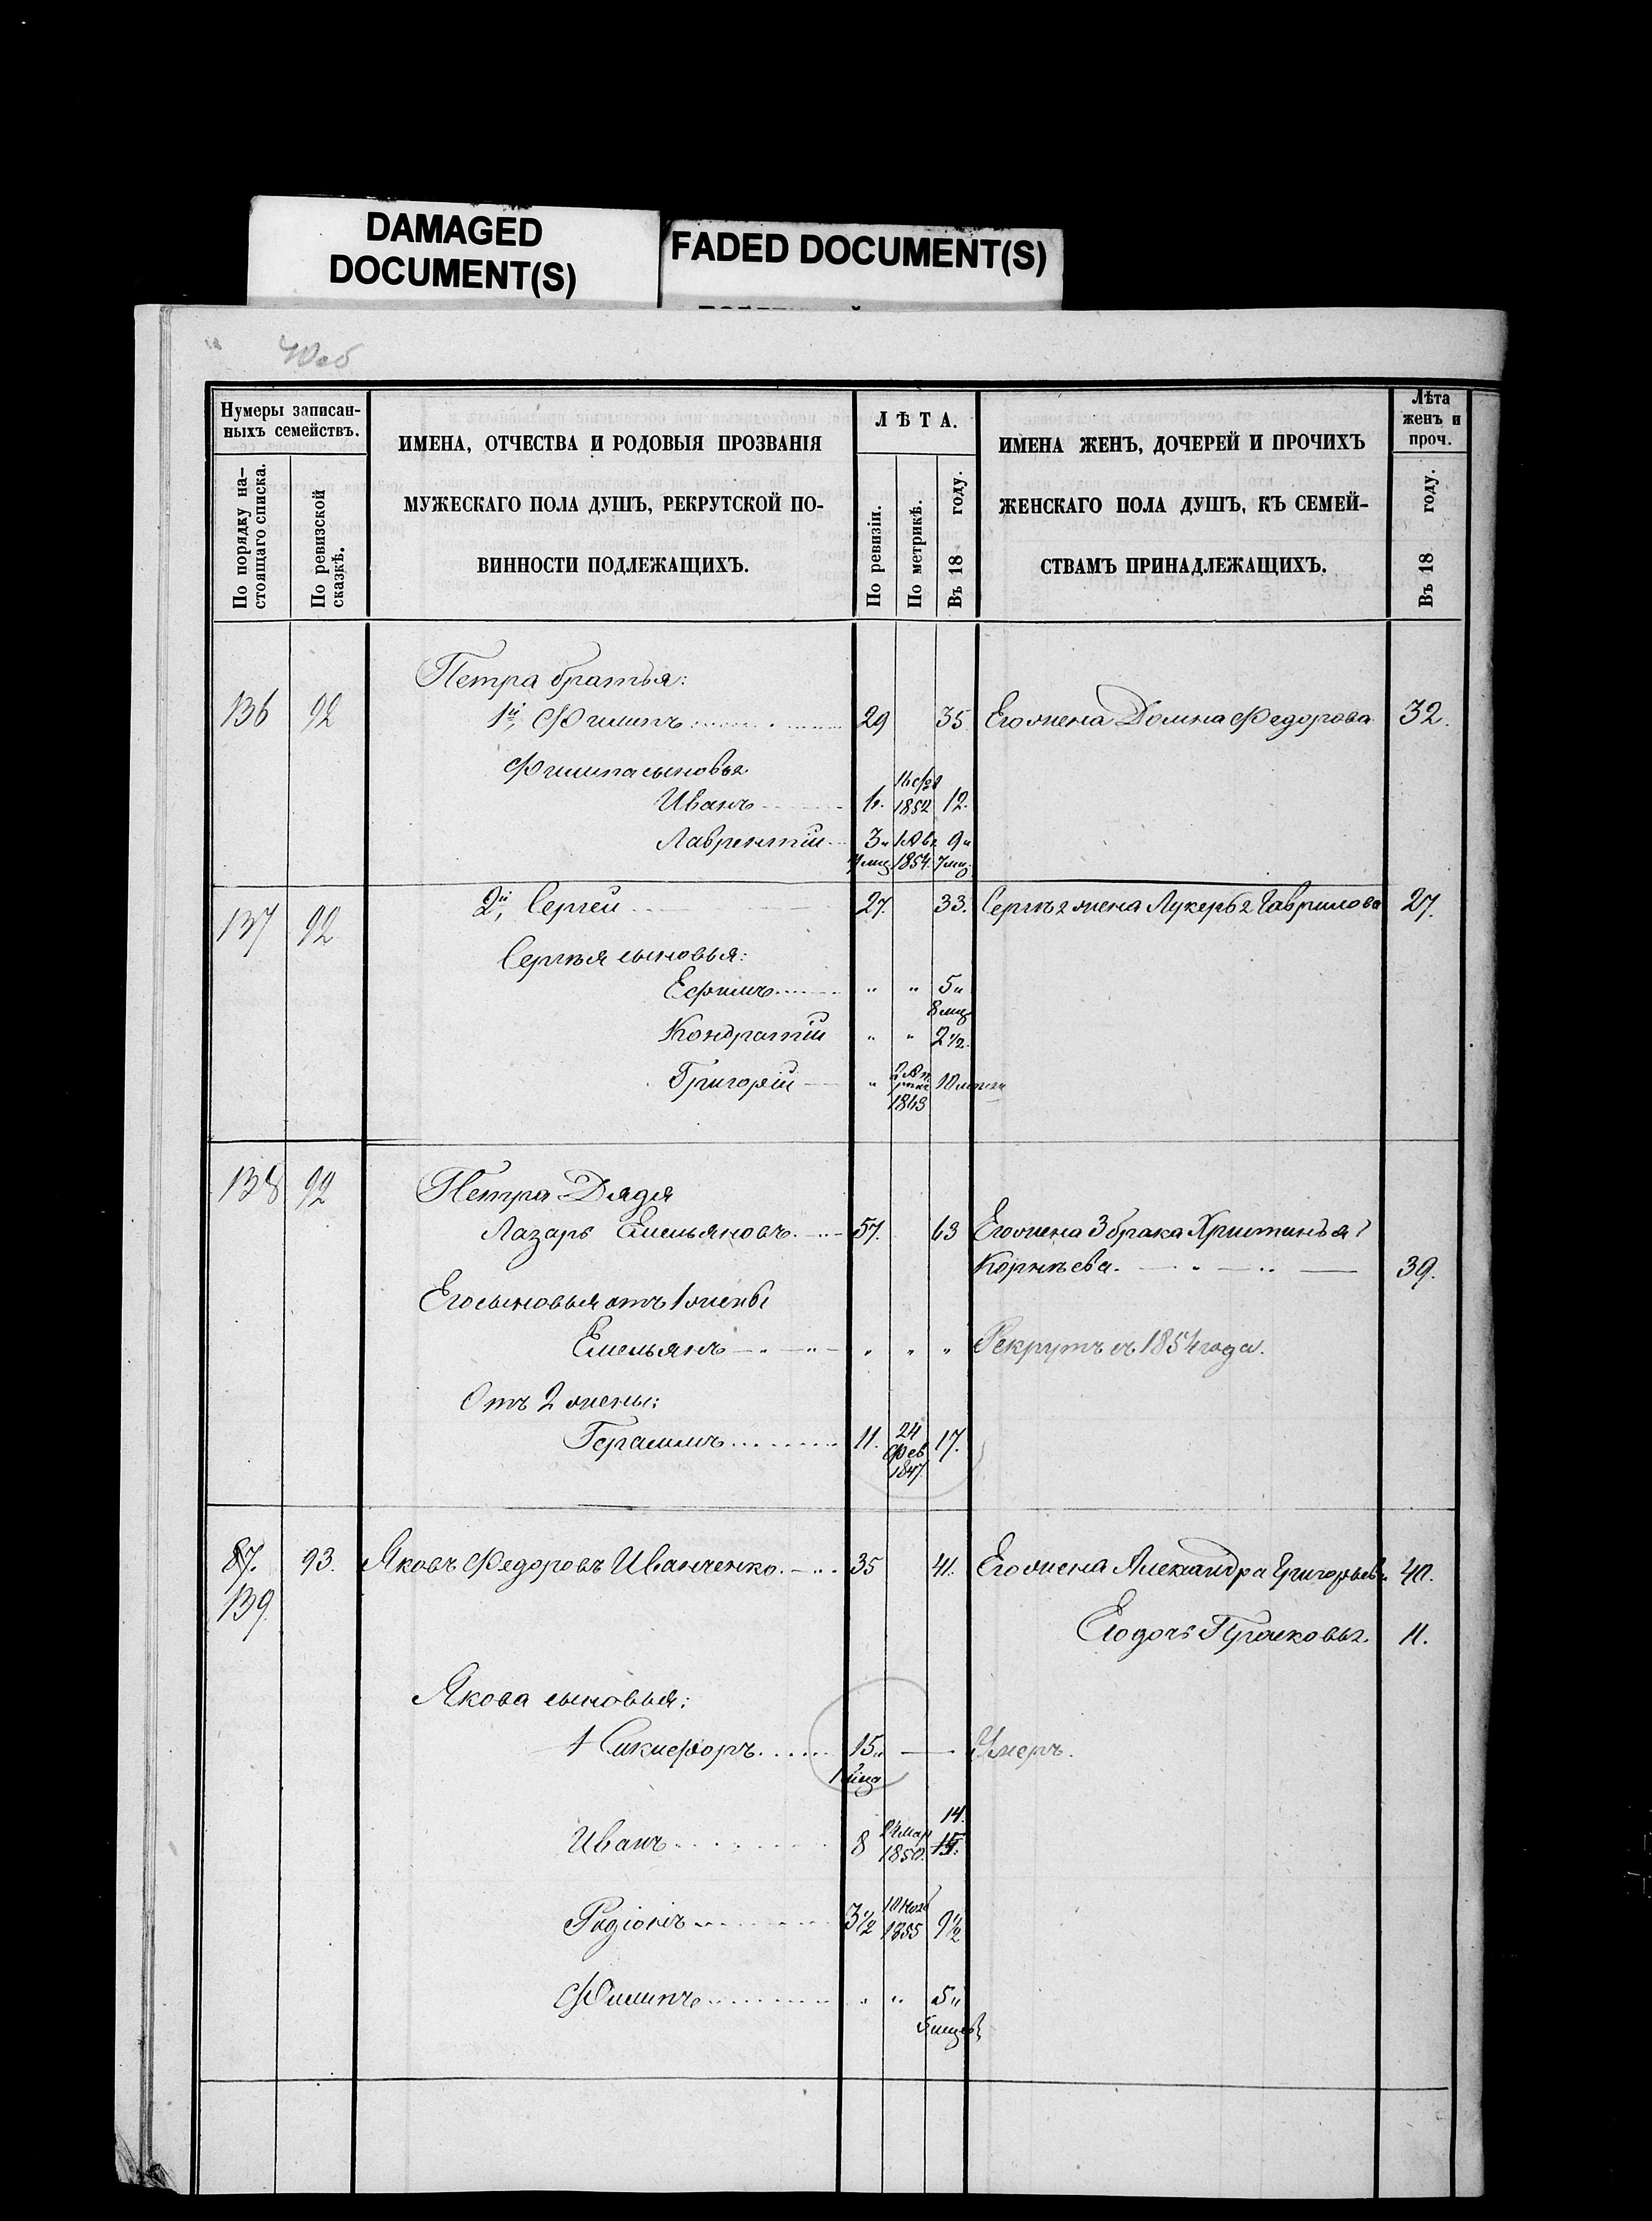 DAMAGED
DOCUMENT(S)
FADED DOCUMENT(S)
40об
Нумеры записан-
ныхъ семействъ.
По порядку на-
стоящаго списка.
По ревизской
сказкѣ.
ИМЕНА, ОТЧЕСТВА И РОДОВЫЯ ПРОЗВАНІЯ
МУЖЕСКАГО ПОЛА ДУШЪ, РЕКРУТСКОЙ ПО-
ВИННОСТИ ПОДЛЕЖАЩИХЪ.
ЛѢТА.
По ревизіи.
По метрикѣ.
Въ 18 году.
ИМЕНА ЖЕНЪ, ДОЧЕРЕЙ И ПРОЧИХЪ
ЖЕНСКАГО ПОЛА ДУШЪ, КЪ СЕМЕЙ-
СТВАМЪ ПРИНАДЛЕЖАЩИХЪ.
Лѣта
женъ и
проч.
Въ 18 году.
Петра братья:
136 92 1й, Филипъ 29 35 Его жена Домна Федорова 32.
Филипа сыновья
Иванъ 1852 12.
Лаврентій 3 9
1854 7 мц
137 92 2й, Сергей 27. 33. Сергѣя жена Лукерья Гаврилова 27.
Сергѣя сыновья:
Ефимъ " " 5
8 мц
Кондратій " " 2 1/2
Григорій " 10
1863
138 92 Петра Дядя
Лазарь Емельяновъ 57. 63 Его жена 3 брака Христинья
Корнѣева. 39.
Его сыновья отъ 1 жены
Емельянъ " " " Рекрутъ съ 1854 года.
Отъ 2 жены:
Герасимъ 11. 24 17.
Фев
1847
87. 93. Яковъ Федоровъ Иванченко. 35 41. Его жена Александра Григорьев 40.
139.
Его дочь 11.
Якова сыновья:
Никифоръ 15 Умеръ.
14.
Иванъ 8 24 Мар 15.
1850.
Радіонъ 3 1/2 1855 9 1/2
Филипъ " " 5